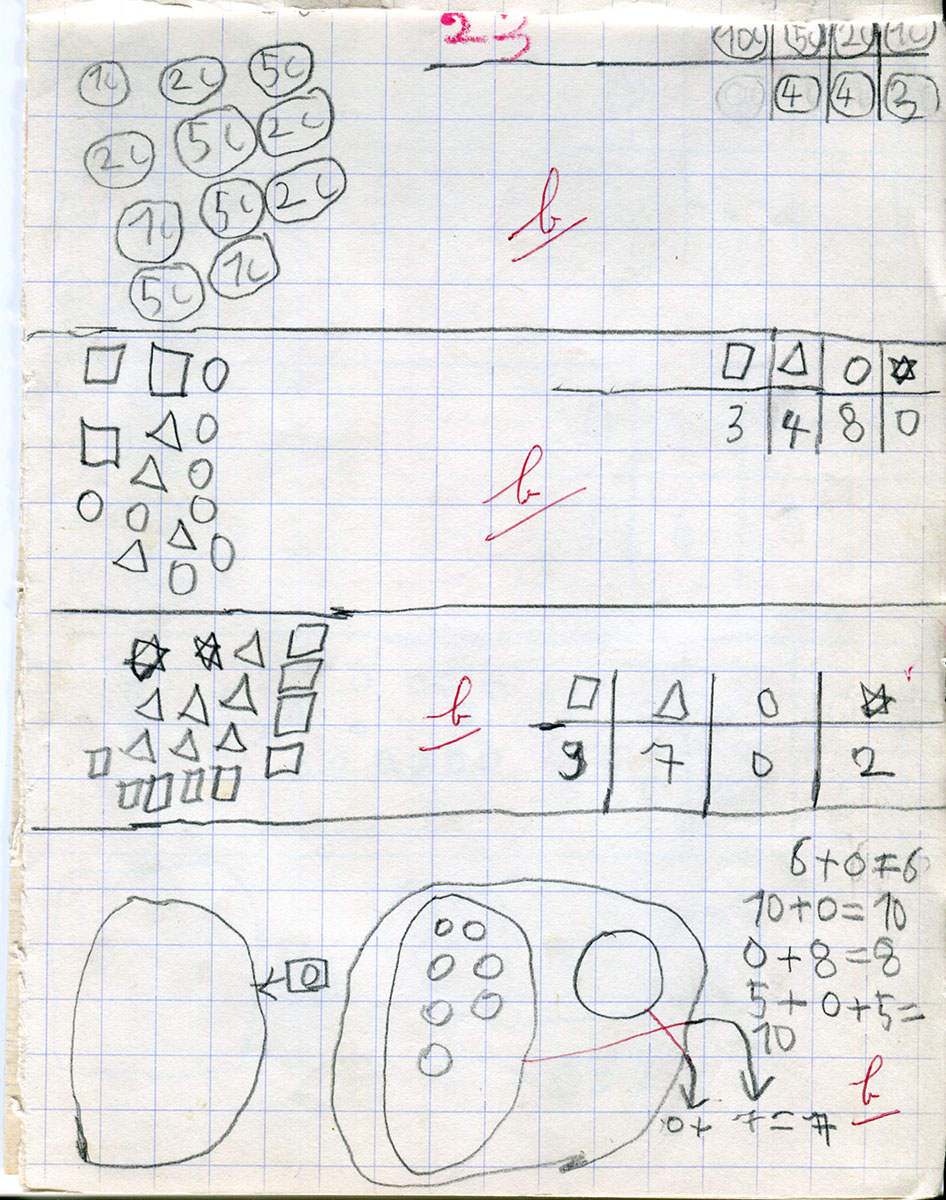 23
10c 5c 2c 1c
4 4 3
1c 2c 5c
2c 5c 2c
1c 5c 2c
5c 1c
b
3 4 8 0
b
b
9 7 0 2
6+0=6
10+0=10
0+8=8
5+0+5=
10
0
0+7=7
b